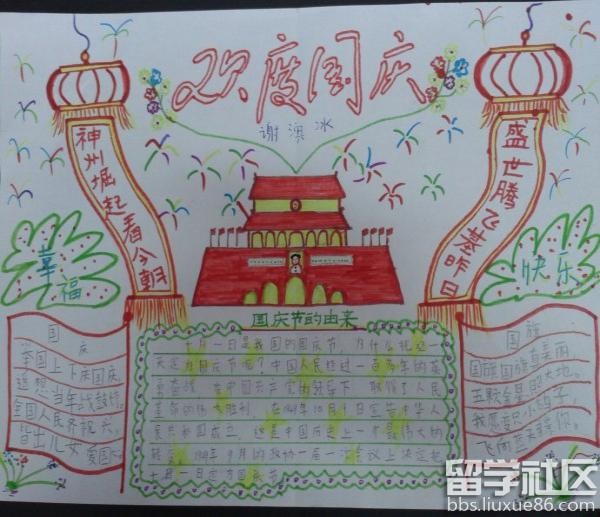 欢度国庆
谢澳冰
神州崛起看今朝
盛世腾飞基昨日
幸福
快乐
国庆节的由来
十月一日是我国的国庆节,为什么把这一
天定为国庆节呢?中国人民经过一百多年的英
勇奋战,在中国共产党的领导下,取得了人民
革命的伟大胜利,在1949年10月1日宣告中华人
民共和国成立,这是中国历史上一个最伟大的
转变,1949年9月的政协一届一次会议上决定把
十月一日定为国庆节
国庆
举国上下庆国庆,
追想当年战鼓
全国人民齐祝兴,
皆出儿女爱国
国旗
国旗国旗真美丽,
五颗金星照大地。
我愿变只小鸽子,
飞向蓝天
留学社区
bbs.liuxue86.com